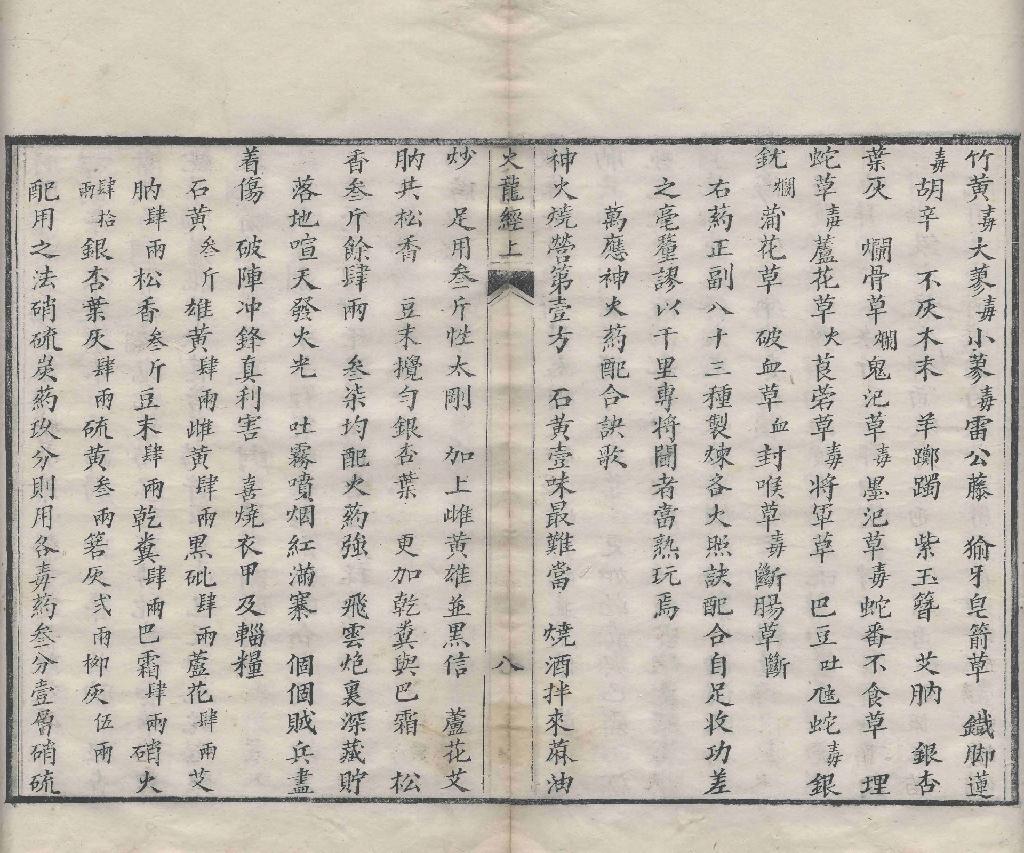 竹黃毒大蓼毒小蓼毒雷公藤　㺄牙皂箭草　鐵脚蓮
毒胡辛　不灰木末　羊躑躅　紫玉簪　艾肭　銀杏
葉灰　爛骨草爛鬼汜草毒墨汜草毒蛇番不食草　埋
蛇草毒蘆花草火莨菪草毒將軍草　巴豆吐虺蛇毒銀
銃爛蒲花草　破血草血封喉草毒斷腸草斷
右葯正副八十三種製煉各大照訣配合自足收功差
之毫釐謬以千里專將閫者當熟玩焉
萬應神火葯配合訣歌
神火燒營第壹方　石黃壹味最難當　燒酒拌來蔴油
火龍經上　八
炒　足用叁斤性太剛　加上雌黃雄並黑信　蘆花艾
肭共松香　豆末攪勻銀杏葉　更加乾糞與巴霜　松
香叁斤餘肆兩　叁柒均配火葯強　飛雲炮裏深藏貯
落地喧天發火光　吐霧噴烟紅滿寨　個個賊兵盡
着傷　破陣冲鋒真利害　喜燒衣甲及輜糧
石黃叁斤雄黃肆兩雌黃肆兩黑砒肆兩蘆花肆兩艾
肭肆兩松香叁斤豆末肆兩乾糞肆兩巴霜肆兩硝火
肆拾兩銀杏葉灰肆兩硫黃叁兩箬灰弍兩柳灰伍兩
配用之法硝硫炭葯玖分則用各毒葯叁分壹層硝硫